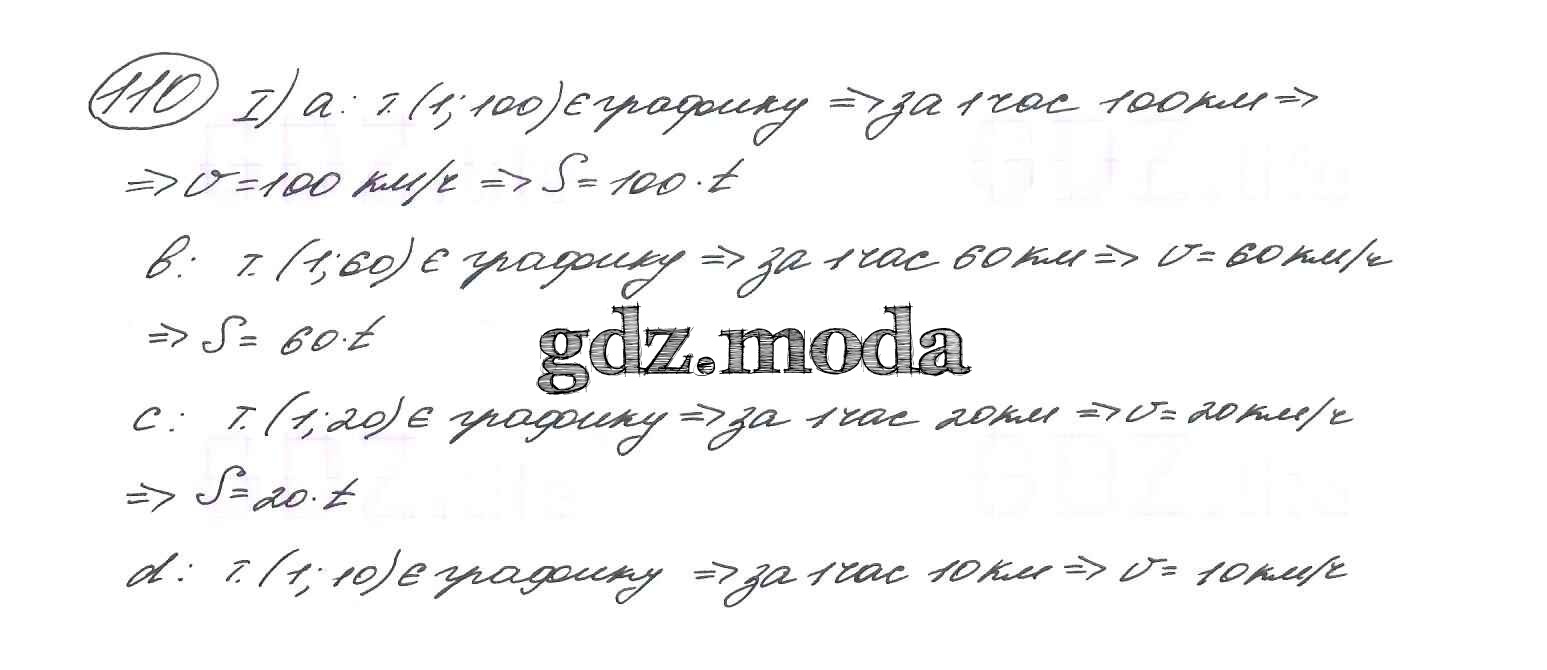 110 I) a: т.(1; 100) ∈ графику => за 1 час 100 км =>
=> v = 100 км/ч => S = 100·t
b: т. (1; 60) ∈ графику => за 1 час 60 км => v = 60 км/ч
=> S = 60·t
gdz.moda
c: т. (1; 20) ∈ графику => за 1 час 20 км => v = 20 км/ч
=> S = 20·t
d: т. (1; 10) ∈ графику => за 1 час 10 км => v = 10 км/ч